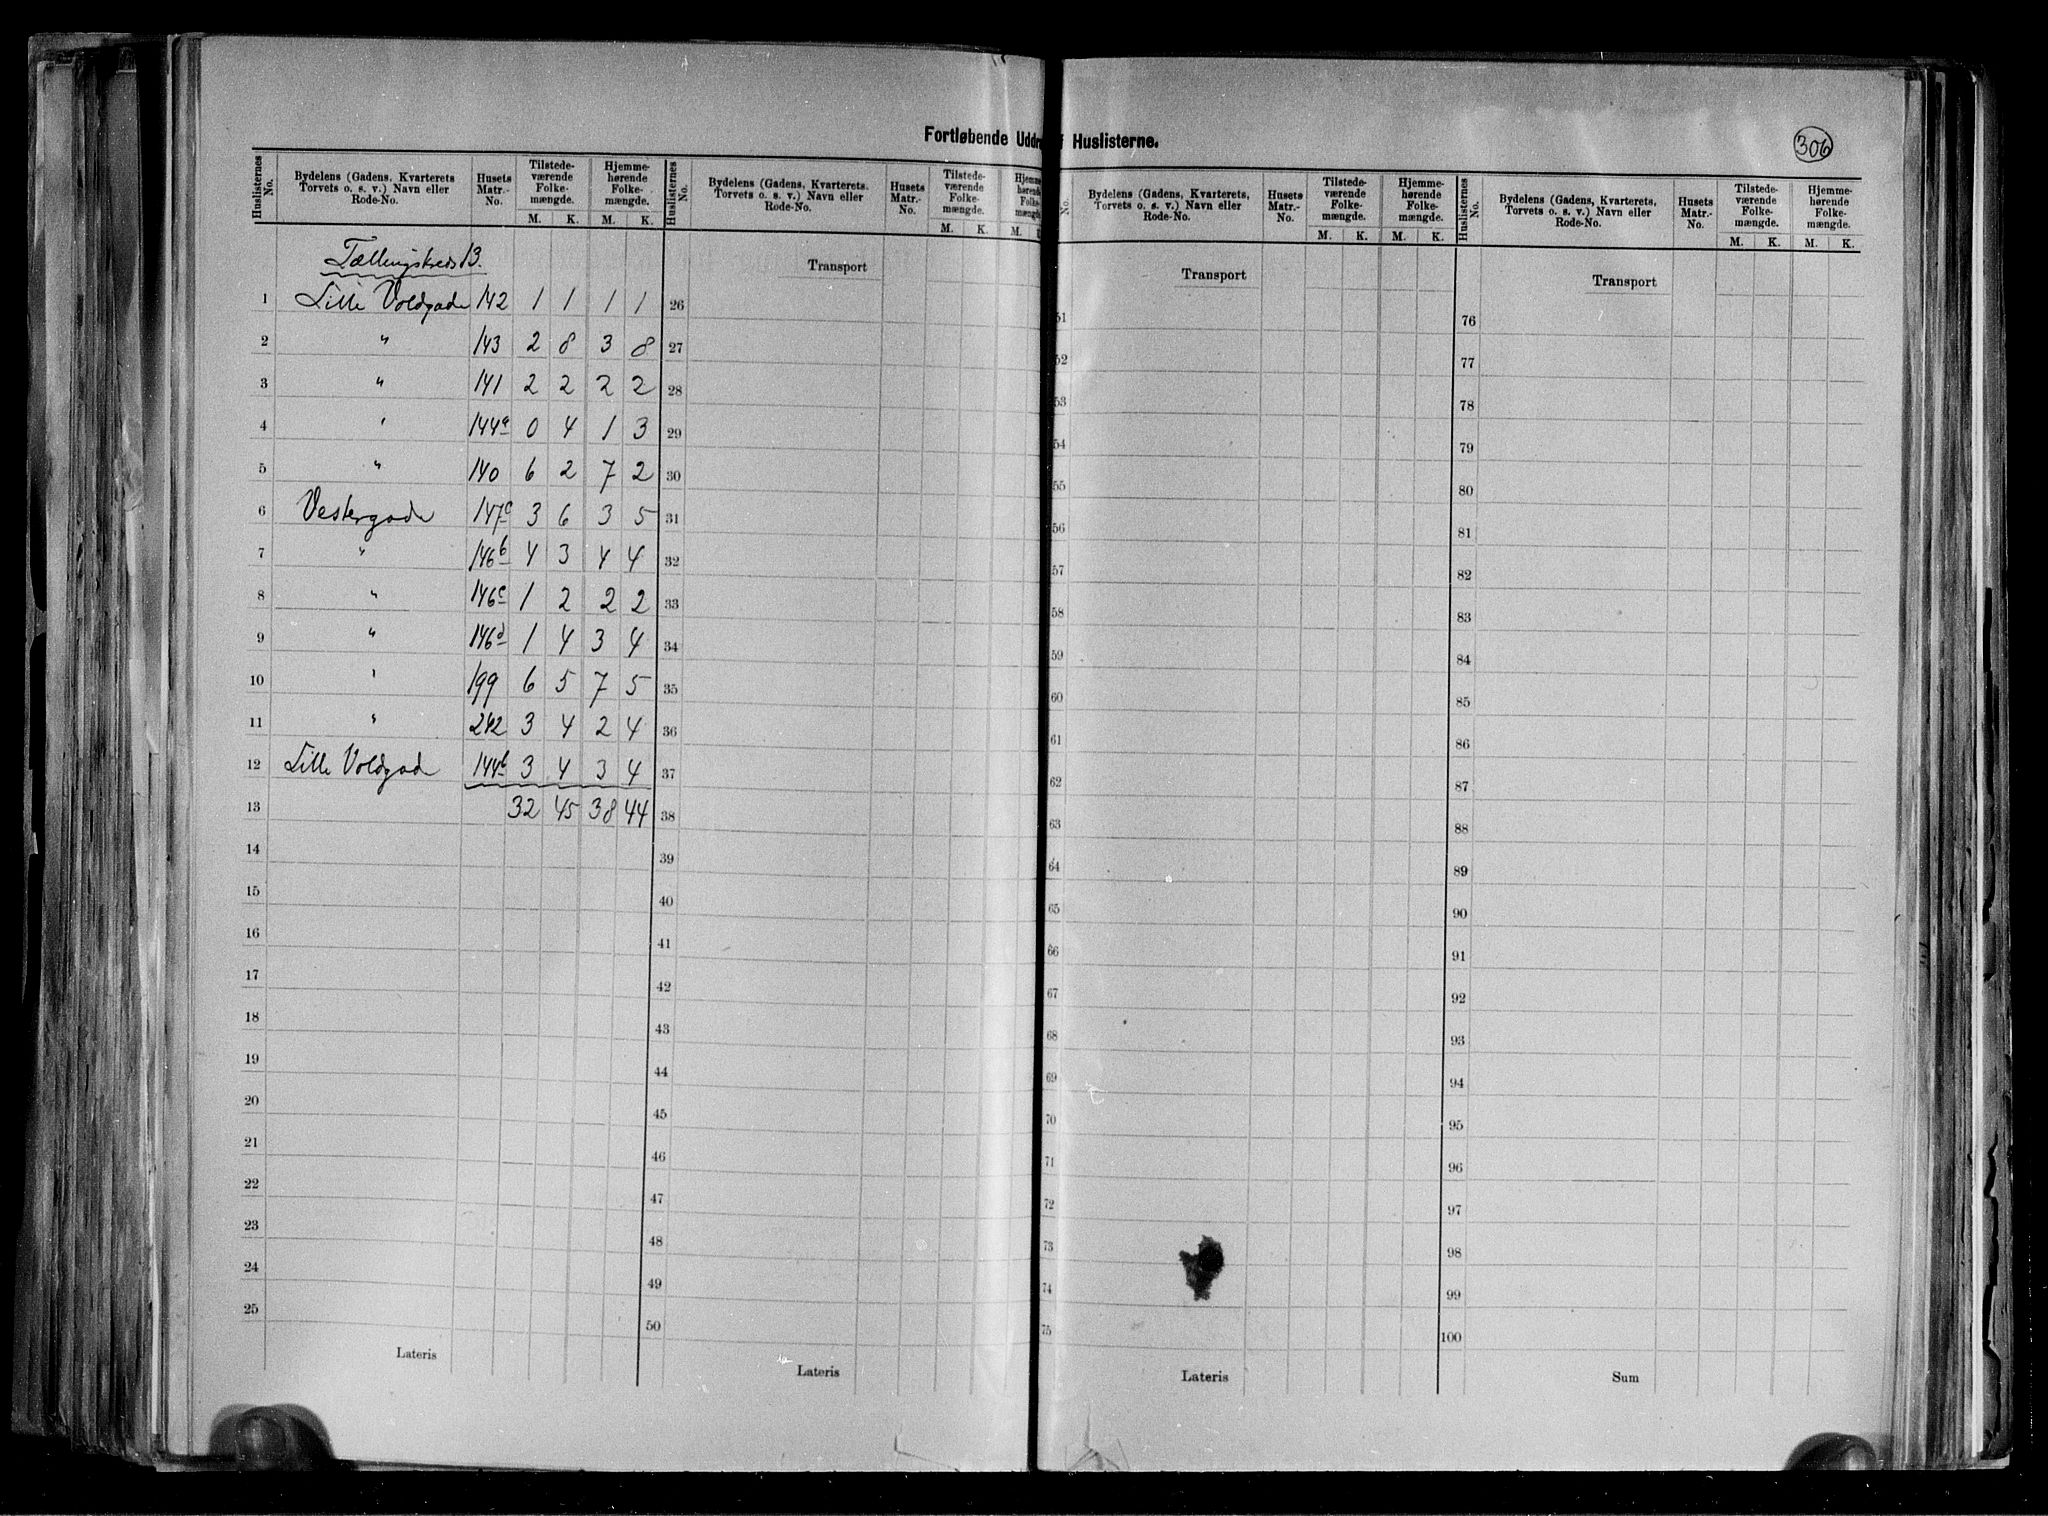 Fortløbende Uddr f Huslisterne.
306
Huslisternes No. Bydelens (Gadens, Kvarterets Torvets o. s. v.) Navn eller Rode-No. Husets Matr.-No. Tilstedeværende Folkemængde. M. K. Hjemmehørende Folkemængde. M. K.
Tællingskreds 13.
1 Lille Voldgade 142 1 1 1 1
2 " 143 2 8 3 8
3 " 141 2 2 2 2
4 " 144a 0 4 1 3
5 " 140 6 2 7 2
6 Vestergade 147c 3 6 3 5
7 " 146b 4 3 4 4
8 " 146c 1 2 2 2
9 " 146d 1 4 3 4
10 " 199 6 5 7 5
11 " 242 3 4 2 4
12 Lille Voldgade 144b 3 4 3 4
13 32 45 38 44
14
15
16
17
18
19
20
21
22
23
24
25
Lateris
Huslisternes No. Bydelens (Gadens, Kvarterets, Torvets o. s. v.) Navn eller Rode-No. Husets Matr.-No. Tilstedeværende Folkemængde. M. K. Hjemmehørende Folkemængde M.
Transport
26
27
28
29
30
31
32
33
34
35
36
37
38
39
40
41
42
43
44
45
46
47
48
49
50
Lateris
No. Bydelens (Gadens, Kvarterets, Torvets o. s. v.) Navn eller Rode-No. Husets Matr.-No. Tilstedeværende Folkemængde. M. K. Hjemmehørende Folkemængde. M. K.
Transport
51
52
53
54
55
56
57
58
59
60
61
62
63
64
65
66
67
68
69
70
71
72
73
74
75
Lateris
Huslisternes No. Bydelens (Gadens, Kvarterets, Torvets o. s. v.) Navn eller Rode-No. Husets Matr.-No. Tilstedeværende Folkemængde. M. K. Hjemmehørende Folkemængde. M. K.
Transport
76
77
78
79
80
81
82
83
84
85
86
87
88
89
90
91
92
93
94
95
96
97
98
99
100
Sum